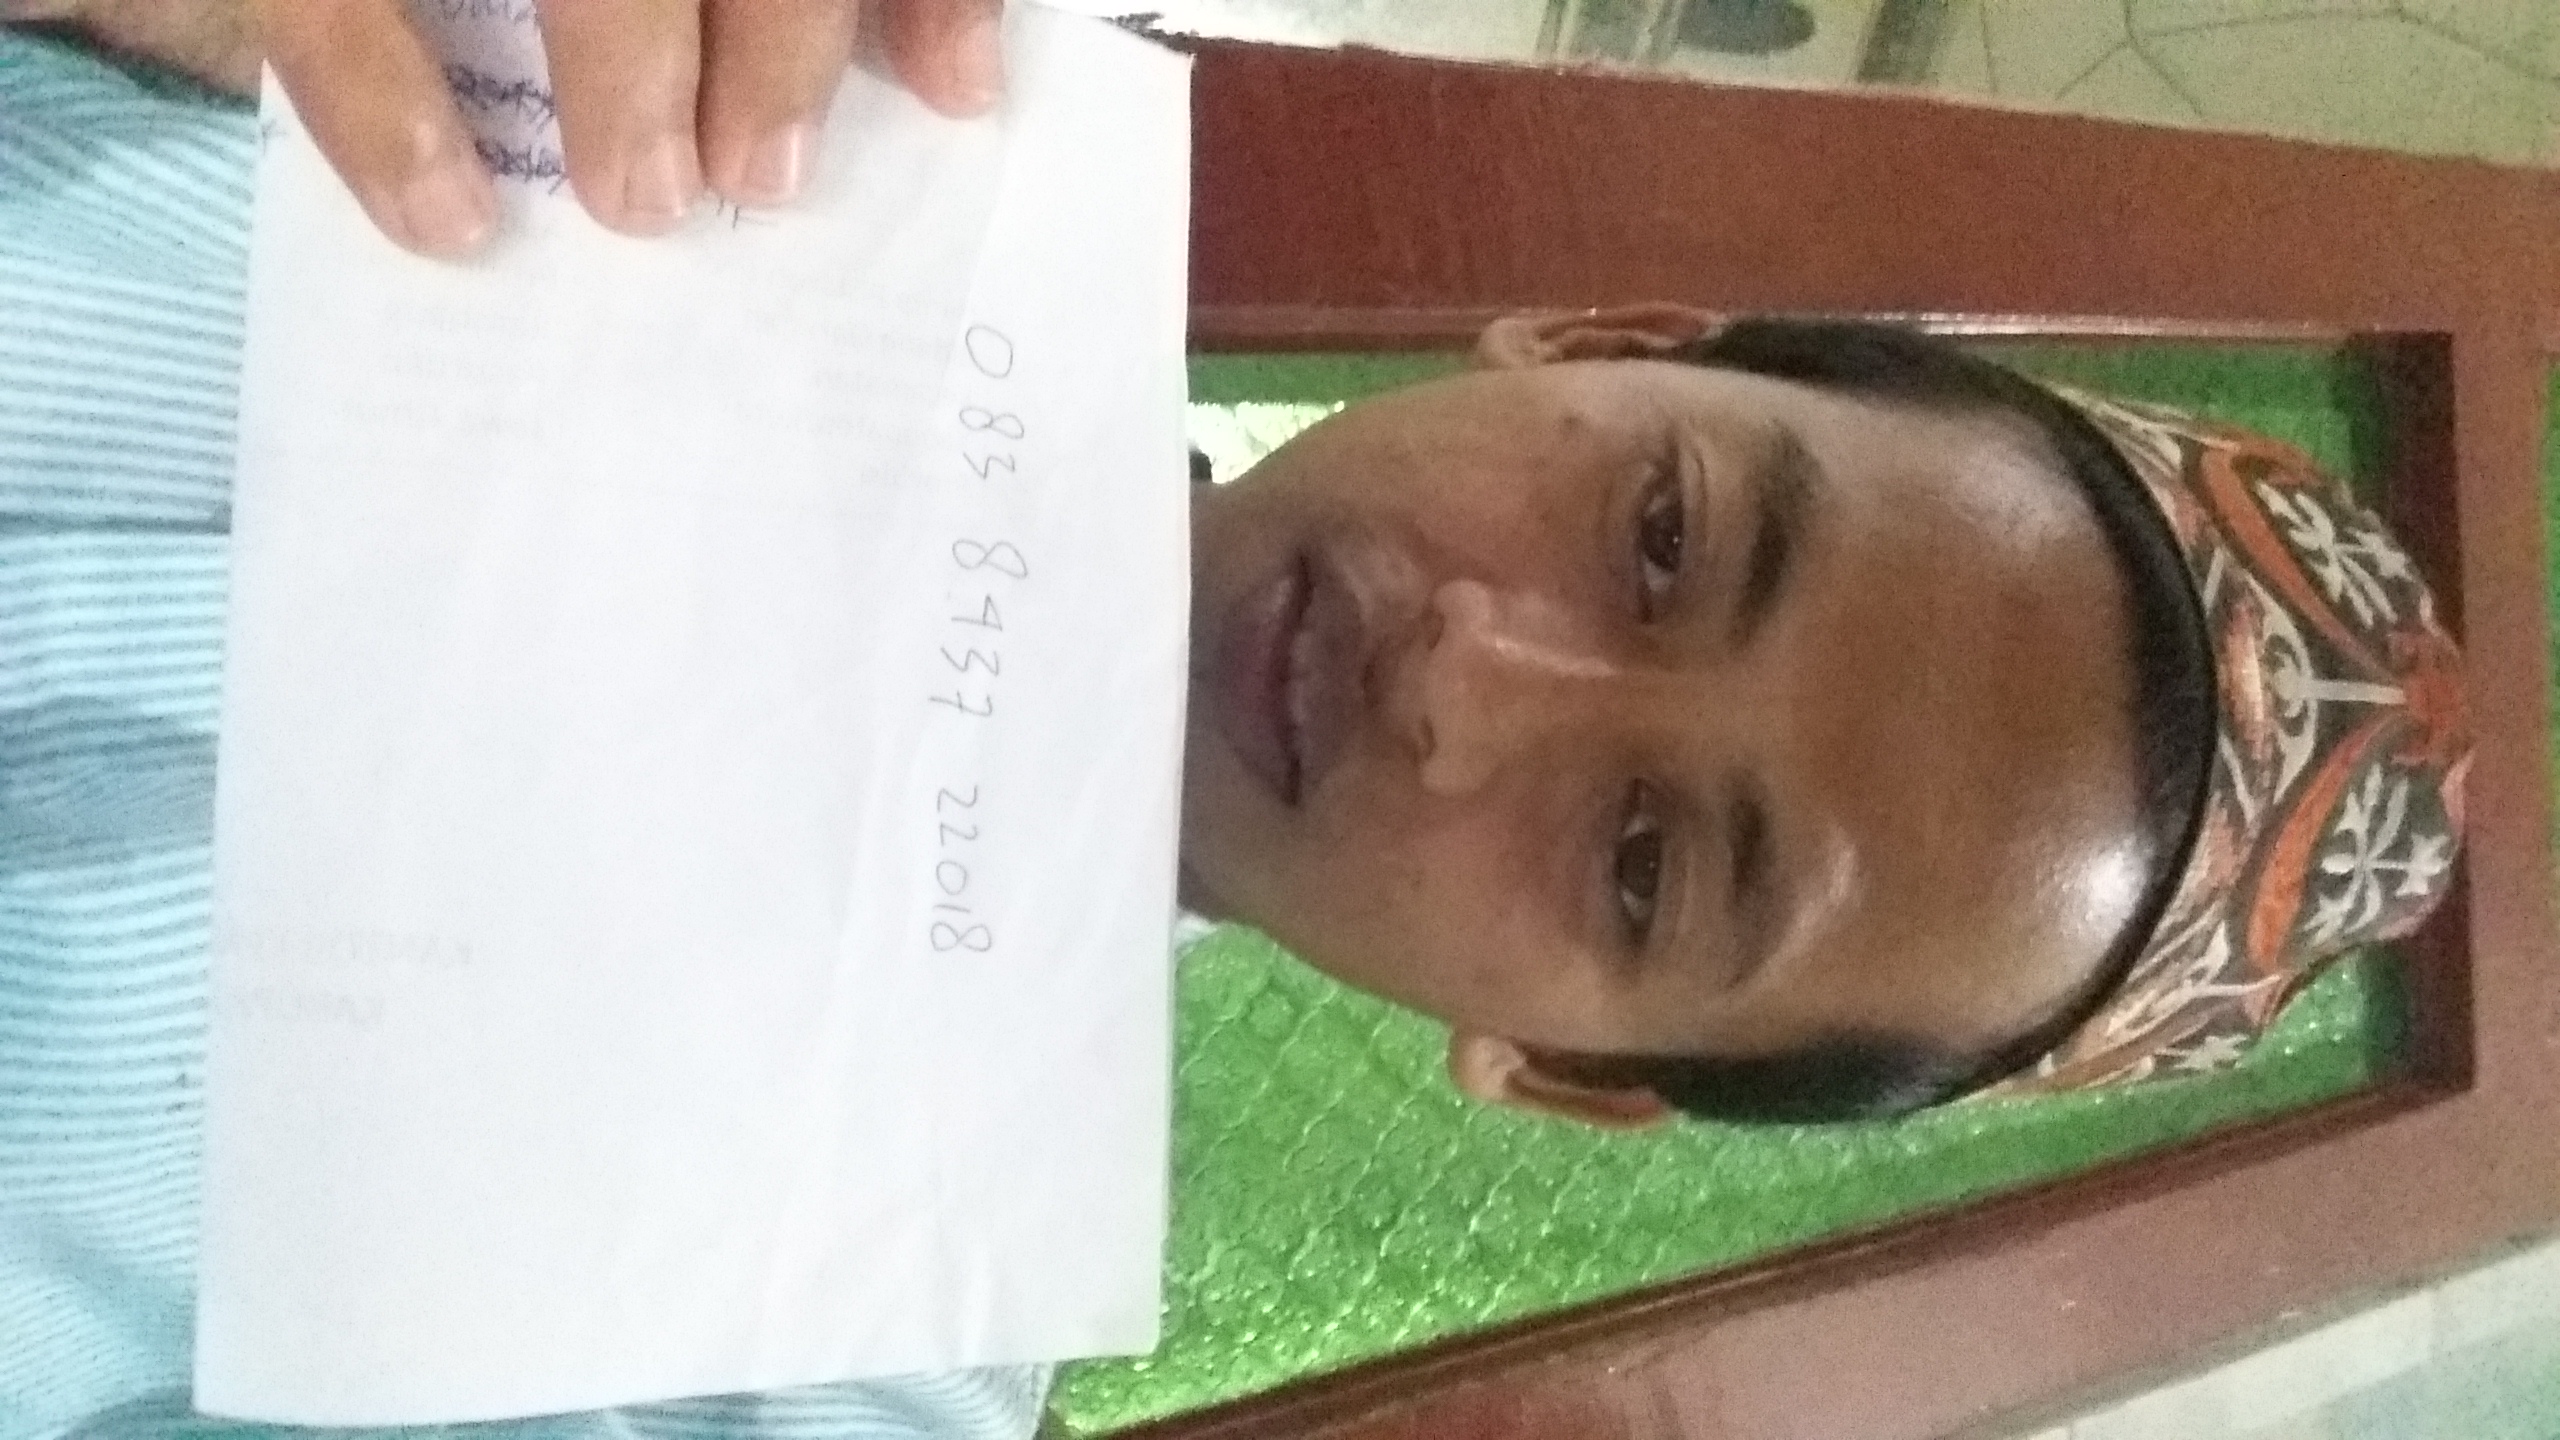 083 8437 22018